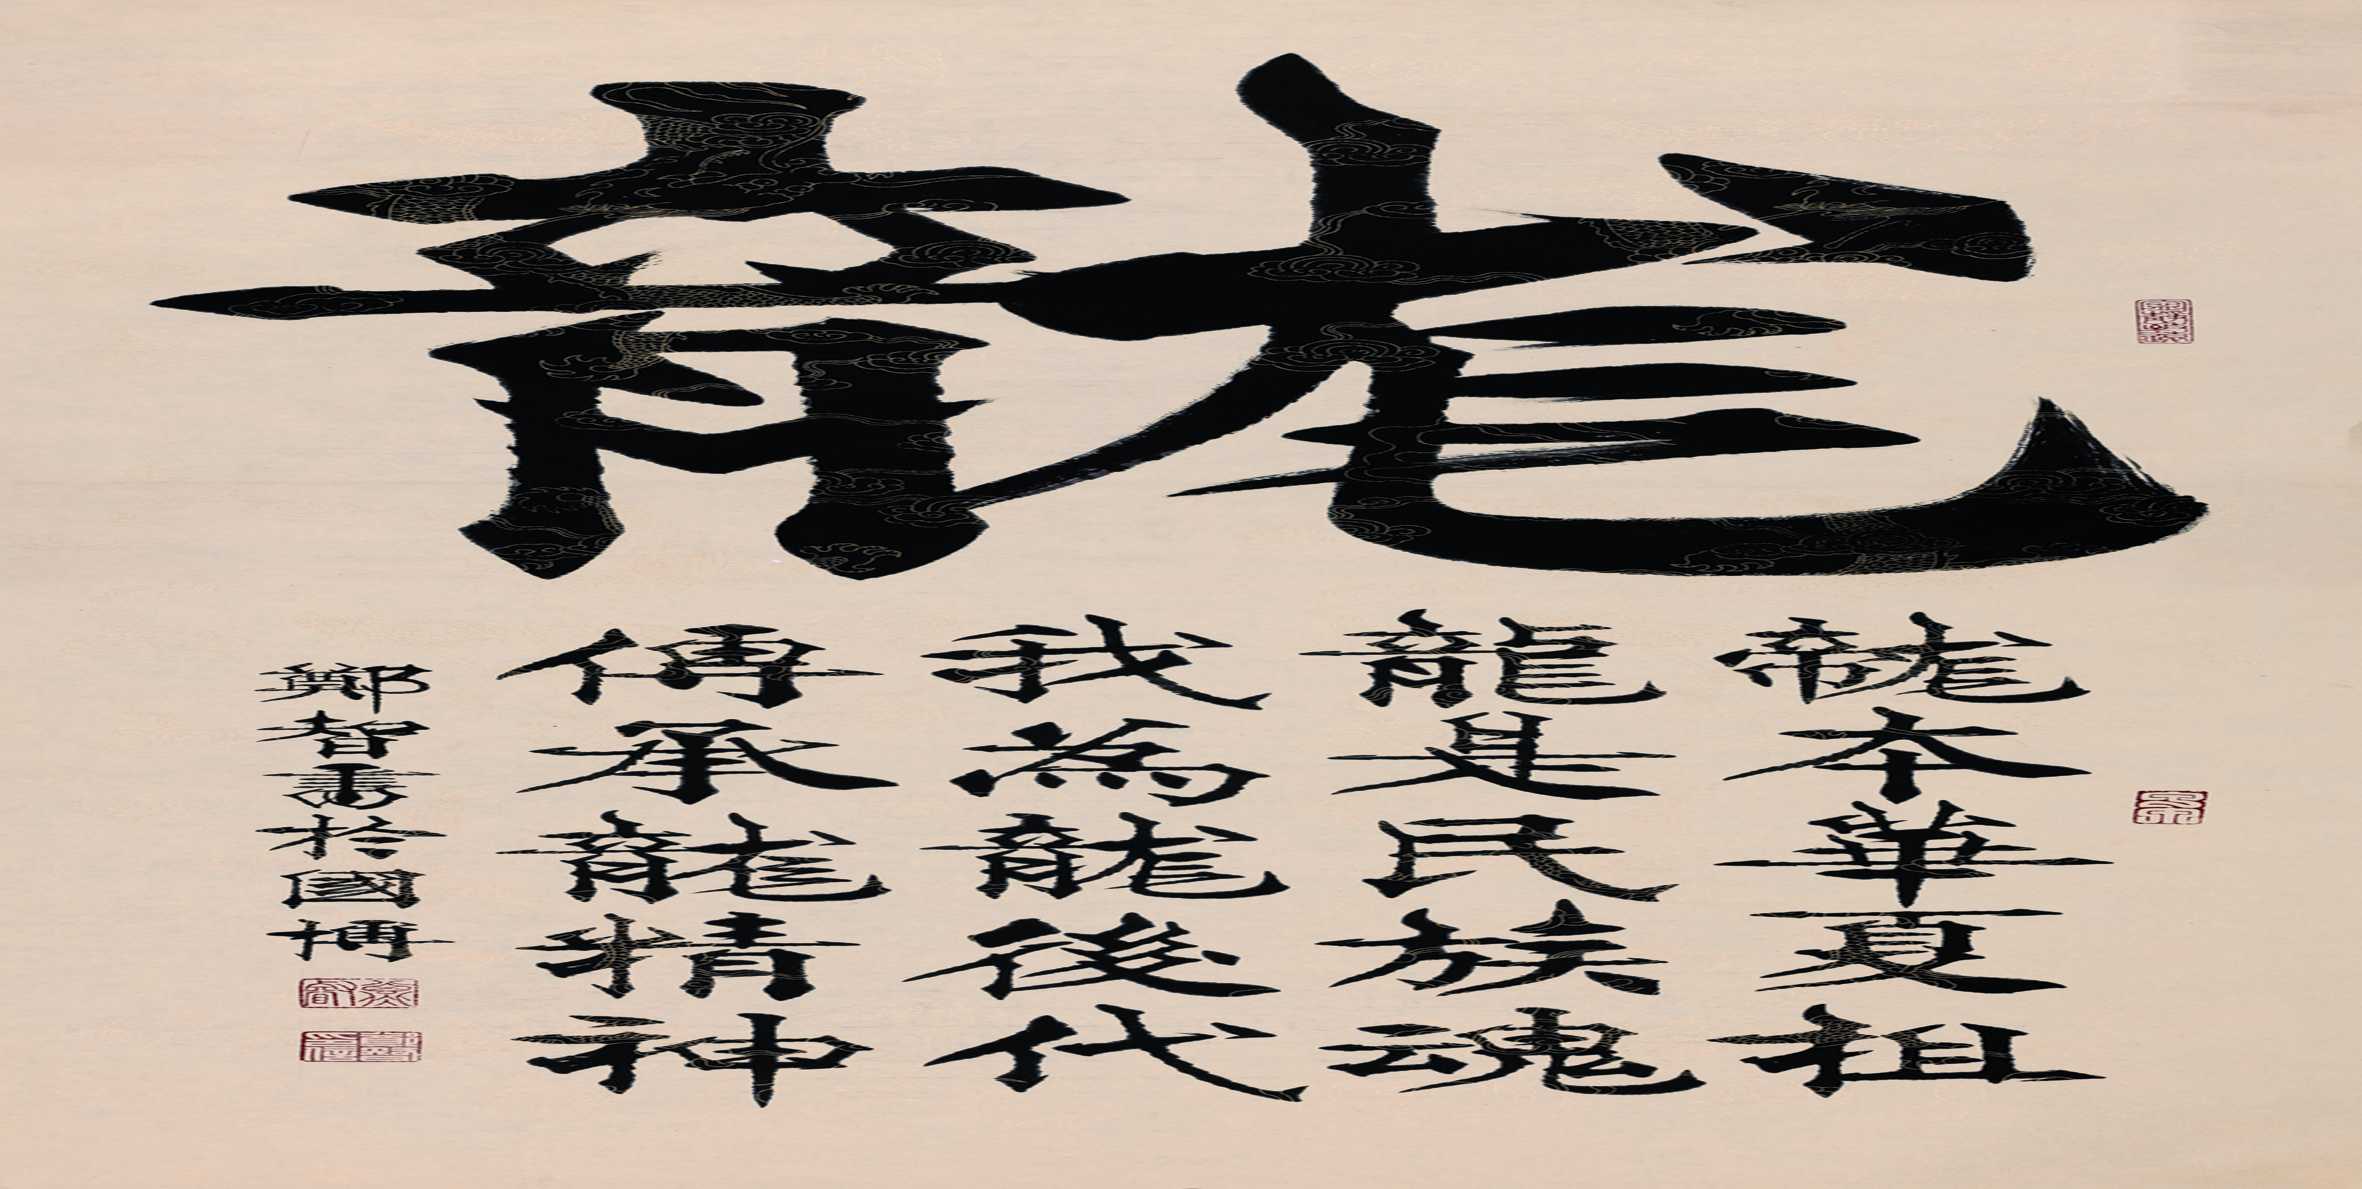 龍
龍本華夏祖
龍是民族魂
我為龍後代
傳承龍精神
鄭智書於國博